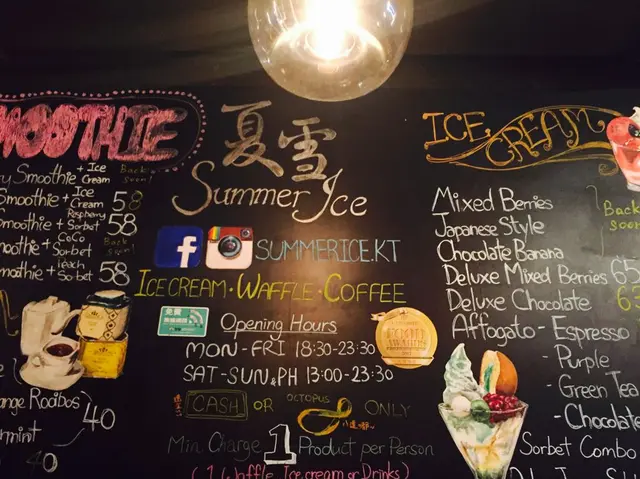 MOOTHIE
Smoothie + Ice Cream Back soon!
Smoothie + Ice Cream 58
Smoothie + Raspberry Sorbet 58
Smoothie + CoCo Sorbet Back soon!
Smoothie + Peach Sorbet 58
Rooibos
40
40
夏雪
Summer Ice
f
SUMMERICE.KT
ICE CREAM · WAFFLE · COFFEE
免費
Opening Hours
MON-FRI 18:30-23:30
SAT-SUN & PH 13:00-23:30
CASH OR OCTOPUS 八達通 ONLY
Min Charge 1 Product per Person
(1 Waffle, Ice cream or Drinks)
ICE CREAM
Mixed Berries
Japanese Style
Back soon!
Chocolate Banana
Deluxe Mixed Berries 65
Deluxe Chocolate
Affogato - Espresso
- Purple
- Green Tea
- Chocolate
Sorbet Combo